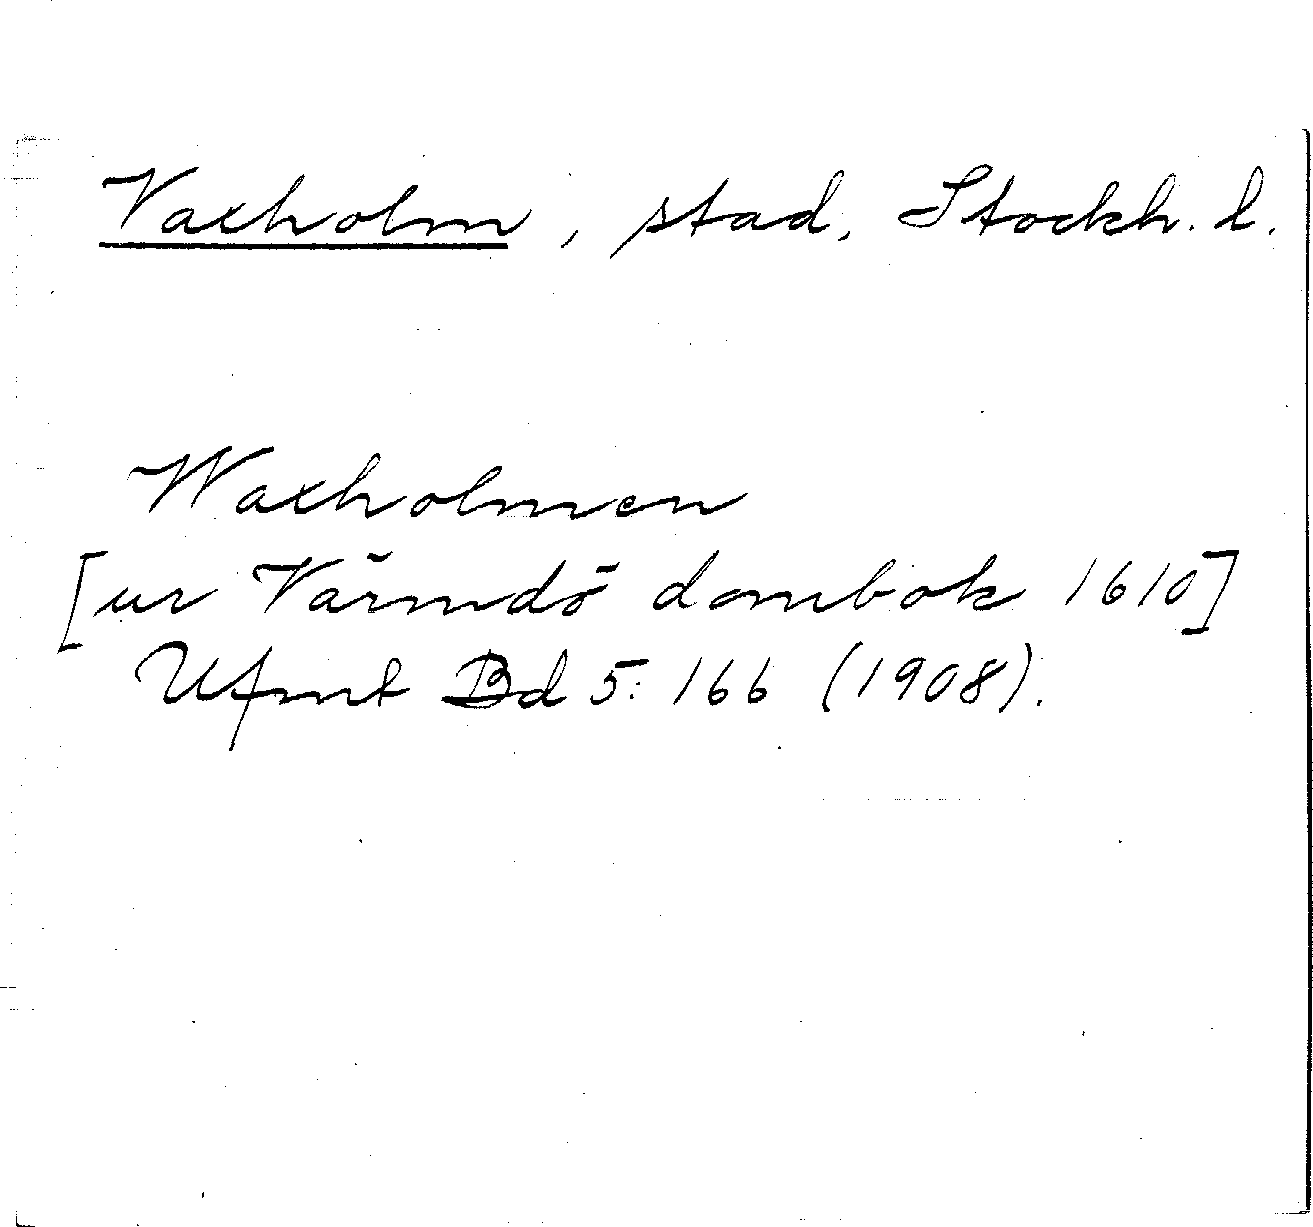 Vaxholm, stad, Stockh. l.
Waxholmen
[ur Värmdö dombok 1610]
Ufmt Bd 5: 166 (1908).